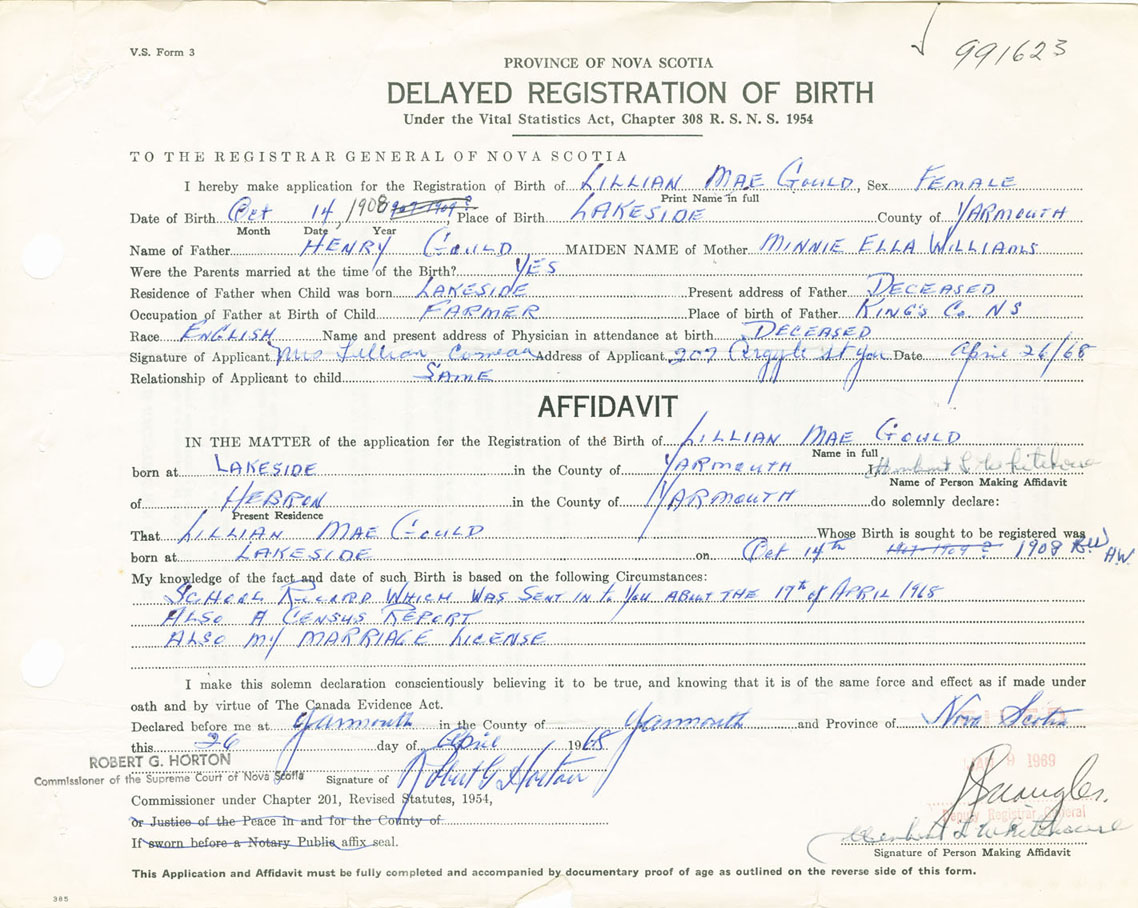 V.S. Form 3
991623
PROVINCE OF NOVA SCOTIA
DELAYED REGISTRATION OF BIRTH
Under the Vital Statistics Act, Chapter 308 R. S. N. S. 1954
TO THE REGISTRAR GENERAL OF NOVA SCOTIA
I hereby make application for the Registration of Birth of LILLIAN MAE GOULD, Sex FEMALE
Print Name in full
Date of Birth Oct 14, 1908 Place of Birth LAKESIDE County of YARMOUTH
Month Date Year
Name of Father HENRY GOULD MAIDEN NAME of Mother MINNIE ELLA WILLIAMS
Were the Parents married at the time of the Birth? YES
Residence of Father when Child was born LAKESIDE Present address of Father DECEASED
Occupation of Father at Birth of Child FARMER Place of birth of Father KING'S Co. NS
Race ENGLISH Name and present address of Physician in attendance at birth DECEASED
Signature of Applicant Mrs Lillian Comeau Address of Applicant 207 Argyle St Yar Date April 26/68
Relationship of Applicant to child SAME
AFFIDAVIT
IN THE MATTER of the application for the Registration of the Birth of LILLIAN MAE GOULD
Name in full
born at LAKESIDE in the County of YARMOUTH I Herbert L Whitehouse
Name of Person Making Affidavit
of HEBRON in the County of YARMOUTH do solemnly declare:
Present Residence
That LILLIAN MAE GOULD Whose Birth is sought to be registered was
born at LAKESIDE on Oct 14th 1907-1909? 1908 H.W.
My knowledge of the fact and date of such Birth is based on the following Circumstances:
SCHOOL RECORD WHICH WAS SENT IN to YOU ABOUT THE 17th of APRIL 1968
ALSO A CENSUS REPORT
ALSO MY MARRIAGE LICENSE
I make this solemn declaration conscientiously believing it to be true, and knowing that it is of the same force and effect as if made under
oath and by virtue of The Canada Evidence Act.
Declared before me at Yarmouth in the County of Yarmouth and Province of Nova Scotia
this 26 day of April 1968
ROBERT G. HORTON
Commissioner of the Supreme Court of Nova Scotia Signature of Robert G Horton
9 1969
Commissioner under Chapter 201, Revised Statutes, 1954,
Deputy Registrar General
or Justice of the Peace in and for the County of
Herbert L Whitehouse
If sworn before a Notary Public affix seal.
Signature of Person Making Affidavit
This Application and Affidavit must be fully completed and accompanied by documentary proof of age as outlined on the reverse side of this form.
305